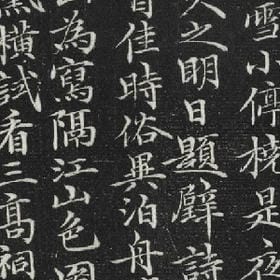 雪小停橈是夜
之明日題壁詩
佳時俗異泊舟
為寫隔江山色
橫試看三高祠